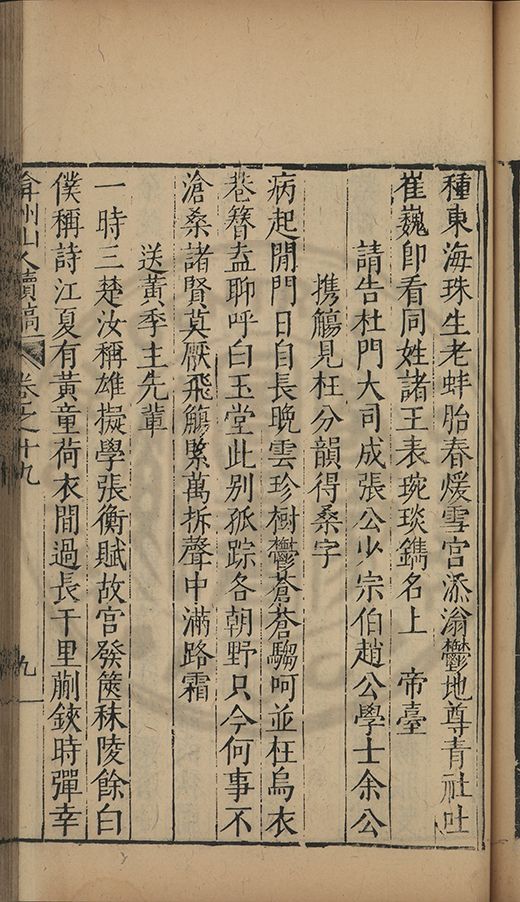 種東海珠生老蚌胎春煖雪宮添滃鬱地尊青社吐
崔巍卽看同姓諸王表琬琰鐫名上　帝臺
請告杜門大司成張公少宗伯趙公學士余公
携觴見枉分韻得桑字
病起閒門日自長晚雲珍樹鬱蒼蒼騶呵並枉烏衣
巷簪盍聊呼白玉堂此别孤踪各朝野只今何事不
滄桑諸賢莫厭飛觴緊萬拆聲中滿路霜
送黃季主先輩
一時三楚汝稱雄擬學張衡賦故宮發篋秣陵餘白
僕稱詩江夏有黃童荷衣間過長干里蒯鋏時彈幸
弇州山人續稿　卷之十九　九